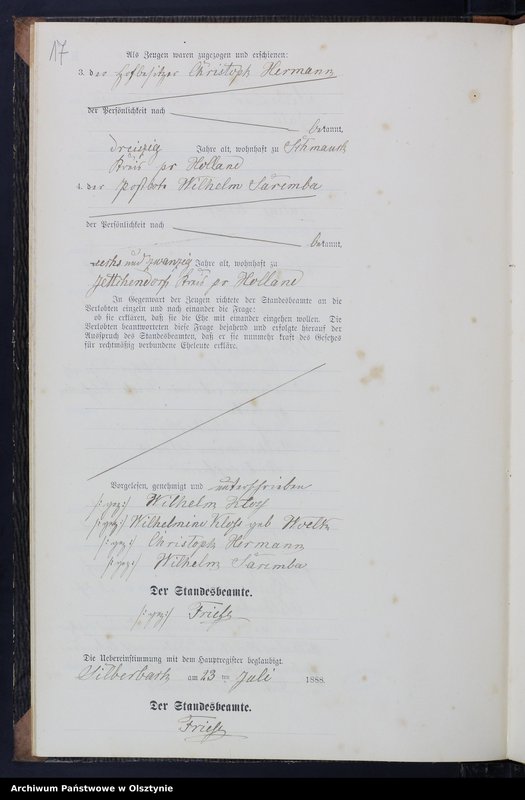 17
Als Zeugen waren zugezogen und erschienen:
3. der Hofbesitzer Christoph Hermann
der Persönlichkeit nach
bekannt,
dreißig Jahre alt, wohnhaft zu Schmauch
Kreis pr Holland
4. der Postbote Wilhelm Saremba
der Persönlichkeit nach
bekannt,
sechs und zwanzig Jahre alt, wohnhaft zu
Kreis pr Holland
In Gegenwart der Zeugen richtete der Standesbeamte an die
Verlobten einzeln und nach einander die Frage:
ob sie erklären, daß sie die Ehe mit einander eingehen wollen. Die
Verlobten beantworteten diese Frage bejahend und erfolgte hierauf der
Ausspruch des Standesbeamten, daß er sie nunmehr kraft des Gesetzes
für rechtmäßig verbundene Eheleute erkläre.
Vorgelesen, genehmigt und unterschrieben
(: gez :) Wilhelm Kloß
(: gez :) Wilhelmine Kloß geb Woelk
(: gez :) Christoph Hermann
(: gez :) Wilhelm Saremba
Der Standesbeamte.
(: gez :) Friese
Die Uebereinstimmung mit dem Hauptregister beglaubigt.
Silberbach am 23 ten Juli 1888.
Der Standesbeamte.
Friese
Archiwum Państwowe w Olsztynie